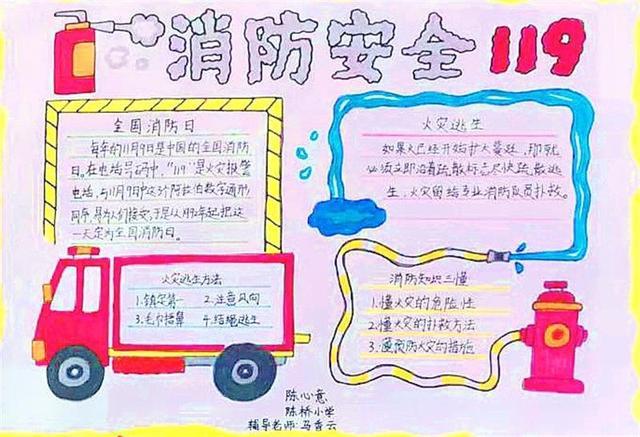 消防安全119
全国消防日
每年的11月9日是中国的全国消防
日。在电话号码中,"119"是火灾报警
电话,与11月9日中这3个阿拉伯数字
同序,易为人们接受,于是从1992年起把这
一天定为全国消防日。
火灾逃生
如果火已经开始扩大蔓延,那就
必须立即沿着疏散标志尽快疏散逃
生,火灾留给专业消防队员扑救。
火灾逃生方法
1.镇定第一 2.注意风向
3.毛巾捂鼻 4.结绳逃生
消防知识三懂
1.懂火灾的危险性
2.懂火灾的扑救方法
3.懂预防火灾的措施
陈心意
陈桥小学
辅导老师:马香云